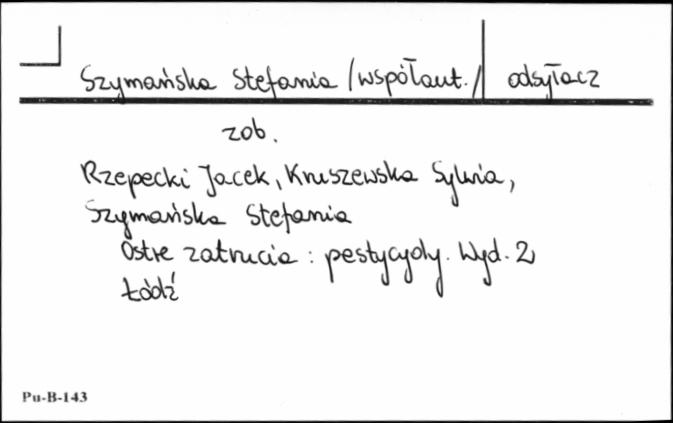 Szymańska Stefania /współaut./ odsyłacz
zob.
Rzepecki Jacek, Kruszewska Sylwia,
Szymańska Stefania
Ostre zatrucia : pestycydy. Wyd. 2
Łódź
Pu-B-143